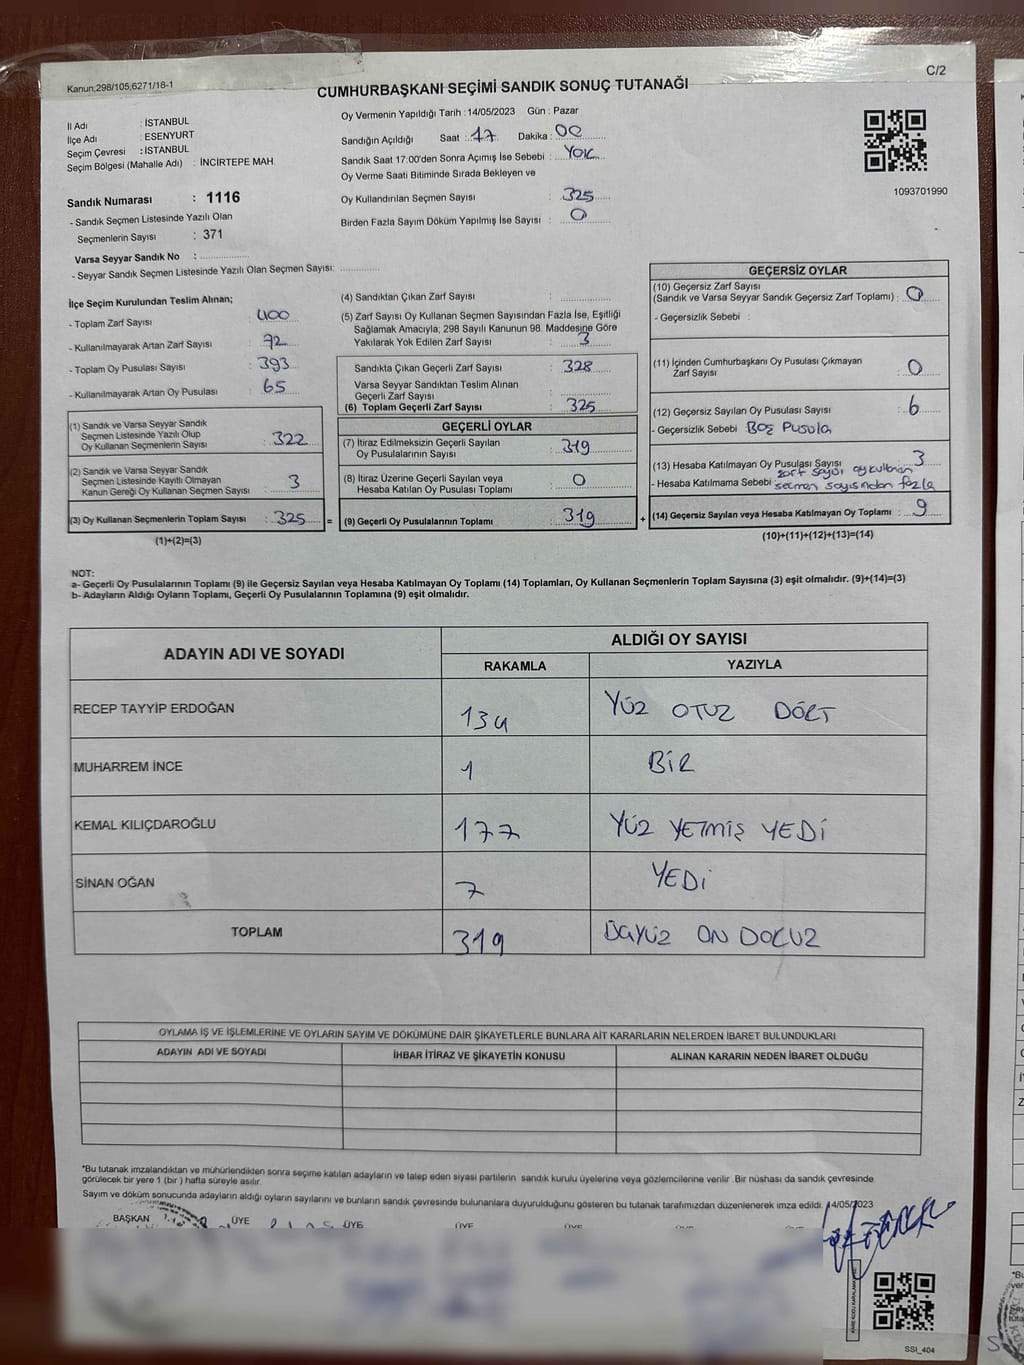 Kanun;298/105;6271/18-1
C/2
CUMHURBAŞKANI SEÇİMİ SANDIK SONUÇ TUTANAĞI
İl Adı : İSTANBUL
İlçe Adı : ESENYURT
Seçim Çevresi : İSTANBUL
Seçim Bölgesi (Mahalle Adı) : İNCİRTEPE MAH.
Oy Vermenin Yapıldığı Tarih : 14/05/2023 Gün : Pazar
Sandığın Açıldığı Saat : 17 Dakika : 00
Sandık Saat 17:00'den Sonra Açımış İse Sebebi : YOK
Oy Verme Saati Bitiminde Sırada Bekleyen ve
Oy Kullandırılan Seçmen Sayısı : 325
Birden Fazla Sayım Döküm Yapılmış İse Sayısı : 0
1093701990
Sandık Numarası : 1116
- Sandık Seçmen Listesinde Yazılı Olan
Seçmenlerin Sayısı : 371
Varsa Seyyar Sandık No :
- Seyyar Sandık Seçmen Listesinde Yazılı Olan Seçmen Sayısı:
İlçe Seçim Kurulundan Teslim Alınan;
- Toplam Zarf Sayısı : 400
- Kullanılmayarak Artan Zarf Sayısı : 72
- Toplam Oy Pusulası Sayısı : 393
- Kullanılmayarak Artan Oy Pusulası : 65
(1) Sandık ve Varsa Seyyar Sandık
Seçmen Listesinde Yazılı Olup
Oy Kullanan Seçmenlerin Sayısı : 322
(2) Sandık ve Varsa Seyyar Sandık
Seçmen Listesinde Kayıtlı Olmayan
Kanun Gereği Oy Kullanan Seçmen Sayısı : 3
(3) Oy Kullanan Seçmenlerin Toplam Sayısı : 325 =
(1)+(2)=(3)
(4) Sandıktan Çıkan Zarf Sayısı :
(5) Zarf Sayısı Oy Kullanan Seçmen Sayısından Fazla İse, Eşitliği
Sağlamak Amacıyla; 298 Sayılı Kanunun 98. Maddesine Göre
Yakılarak Yok Edilen Zarf Sayısı : 3
Sandıkta Çıkan Geçerli Zarf Sayısı : 328
Varsa Seyyar Sandıktan Teslim Alınan
Geçerli Zarf Sayısı :
(6) Toplam Geçerli Zarf Sayısı : 325
GEÇERLİ OYLAR
(7) İtiraz Edilmeksizin Geçerli Sayılan
Oy Pusulalarının Sayısı : 319
(8) İtiraz Üzerine Geçerli Sayılan veya
Hesaba Katılan Oy Pusulası Toplamı : 0
(9) Geçerli Oy Pusulalarının Toplamı : 319 +
GEÇERSİZ OYLAR
(10) Geçersiz Zarf Sayısı
(Sandık ve Varsa Seyyar Sandık Geçersiz Zarf Toplamı) : 0
- Geçersizlik Sebebi :
(11) İçinden Cumhurbaşkanı Oy Pusulası Çıkmayan
Zarf Sayısı : 0
(12) Geçersiz Sayılan Oy Pusulası Sayısı : 6
- Geçersizlik Sebebi : Boş Pusula
(13) Hesaba Katılmayan Oy Pusulası Sayısı : 3
- Hesaba Katılmama Sebebi : zarf sayısı oy kullanan
seçmen sayısından fazla
(14) Geçersiz Sayılan veya Hesaba Katılmayan Oy Toplamı : 9
(10)+(11)+(12)+(13)=(14)
NOT:
a- Geçerli Oy Pusulalarının Toplamı (9) ile Geçersiz Sayılan veya Hesaba Katılmayan Oy Toplamı (14) Toplamları, Oy Kullanan Seçmenlerin Toplam Sayısına (3) eşit olmalıdır. (9)+(14)=(3)
b- Adayların Aldığı Oyların Toplamı, Geçerli Oy Pusulalarının Toplamına (9) eşit olmalıdır.
ADAYIN ADI VE SOYADI
ALDIĞI OY SAYISI
RAKAMLA YAZIYLA
RECEP TAYYİP ERDOĞAN 134 YÜZ OTUZ DÖRT
MUHARREM İNCE 1 BİR
KEMAL KILIÇDAROĞLU 177 YÜZ YETMİŞ YEDİ
SİNAN OĞAN 7 YEDİ
TOPLAM 319 ÜÇYÜZ ON DOKUZ
OYLAMA İŞ VE İŞLEMLERİNE VE OYLARIN SAYIM VE DÖKÜMÜNE DAİR ŞİKAYETLERLE BUNLARA AİT KARARLARIN NELERDEN İBARET BULUNDUKLARI
ADAYIN ADI VE SOYADI İHBAR İTİRAZ VE ŞİKAYETİN KONUSU ALINAN KARARIN NEDEN İBARET OLDUĞU
*Bu tutanak imzalandıktan ve mühürlendikten sonra seçime katılan adayların ve talep eden siyasi partilerin sandık kurulu üyelerine veya gözlemcilerine verilir .Bir nüshası da sandık çevresinde
görülecek bir yere 1 (bir ) hafta süreyle asılır.
Sayım ve döküm sonucunda adayların aldığı oyların sayılarını ve bunların sandık çevresinde bulunanlara duyurulduğunu gösteren bu tutanak tarafımızdan düzenlenerek imza edildi. 14/05/2023
BAŞKAN ÜYE ÜYE ÜYE ÜYE ÜYE
SSI_404